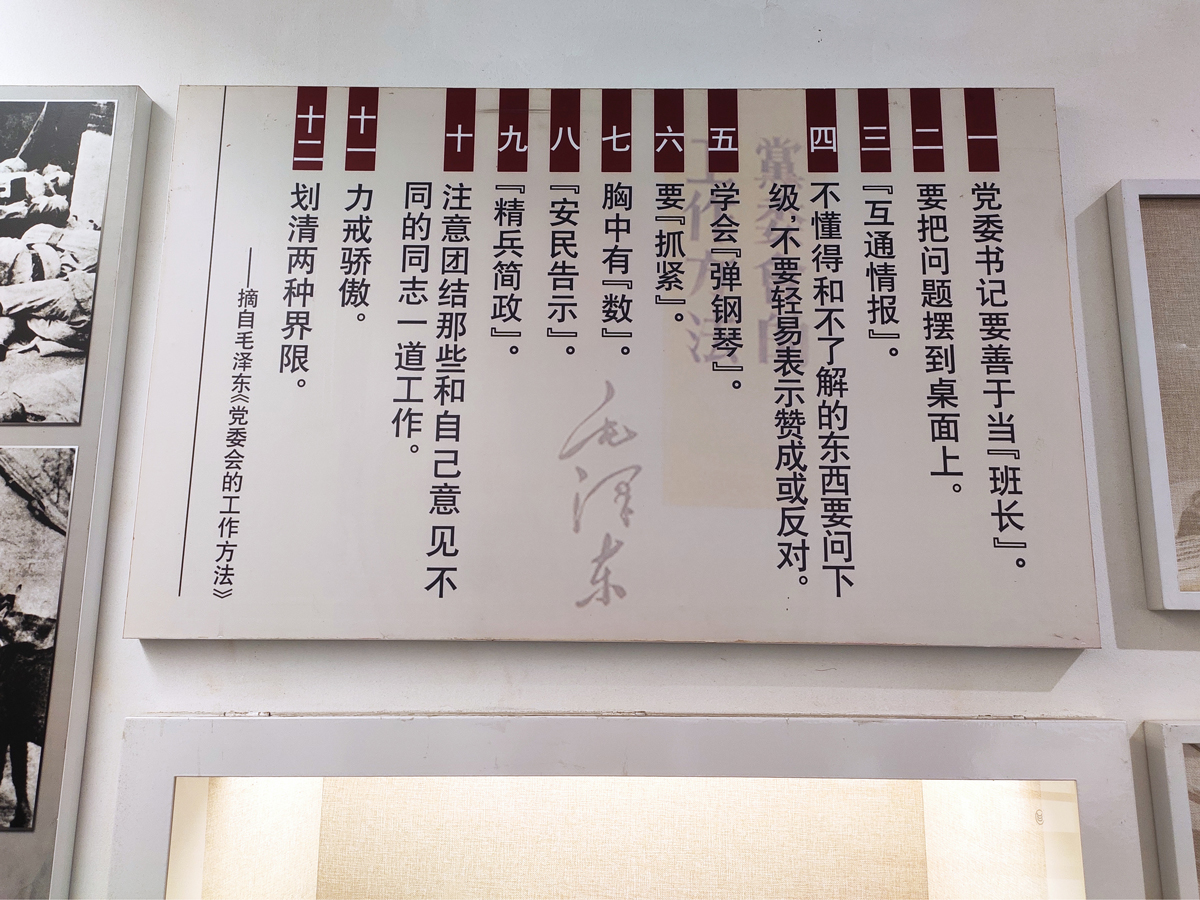 一 党委书记要善于当『班长』。
二 要把问题摆到桌面上。
三 『互通情报』。
四 不懂得和不了解的东西要问下
级,不要轻易表示赞成或反对。
五 学会『弹钢琴』。
六 要『抓紧』。
七 胸中有『数』。
八 『安民告示』。
九 『精兵简政』。
十 注意团结那些和自己意见不
同的同志一道工作。
十一 力戒骄傲。
十二 划清两种界限。
——摘自毛泽东《党委会的工作方法》
黨委會的
工作方法
毛泽东